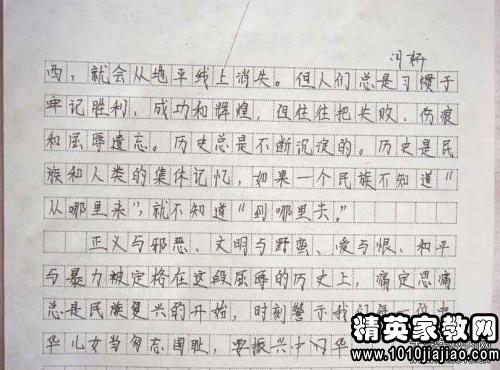 西，就会从地平线上消失。但人们总是习惯于
牢记胜利、成功和辉煌，但往往把失败、伤痕
和屈辱遗忘。历史总是不断沉淀的。历史是民
族和人类的集体记忆，如果一个民族不知道"
从哪里来"，就不知道"到哪里去。"
正义与邪恶、文明与野蛮、爱与恨、和平
与暴力被定格在这段屈辱的历史上，痛定思痛
总是民族复兴的开始，时刻警示我们每一
华儿女当勿忘国耻，要振兴中华
精英家教网
www.1010jiajiao.com